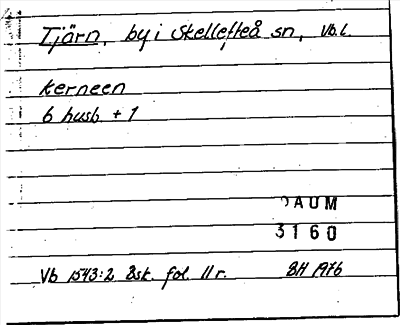 Tjärn, by i Skellefteå sn, Vb.l.
Kerneen
6 husb + 1
DAUM
3160
Vb 1543:2 Bsk. fol. 11 r. BH 1976